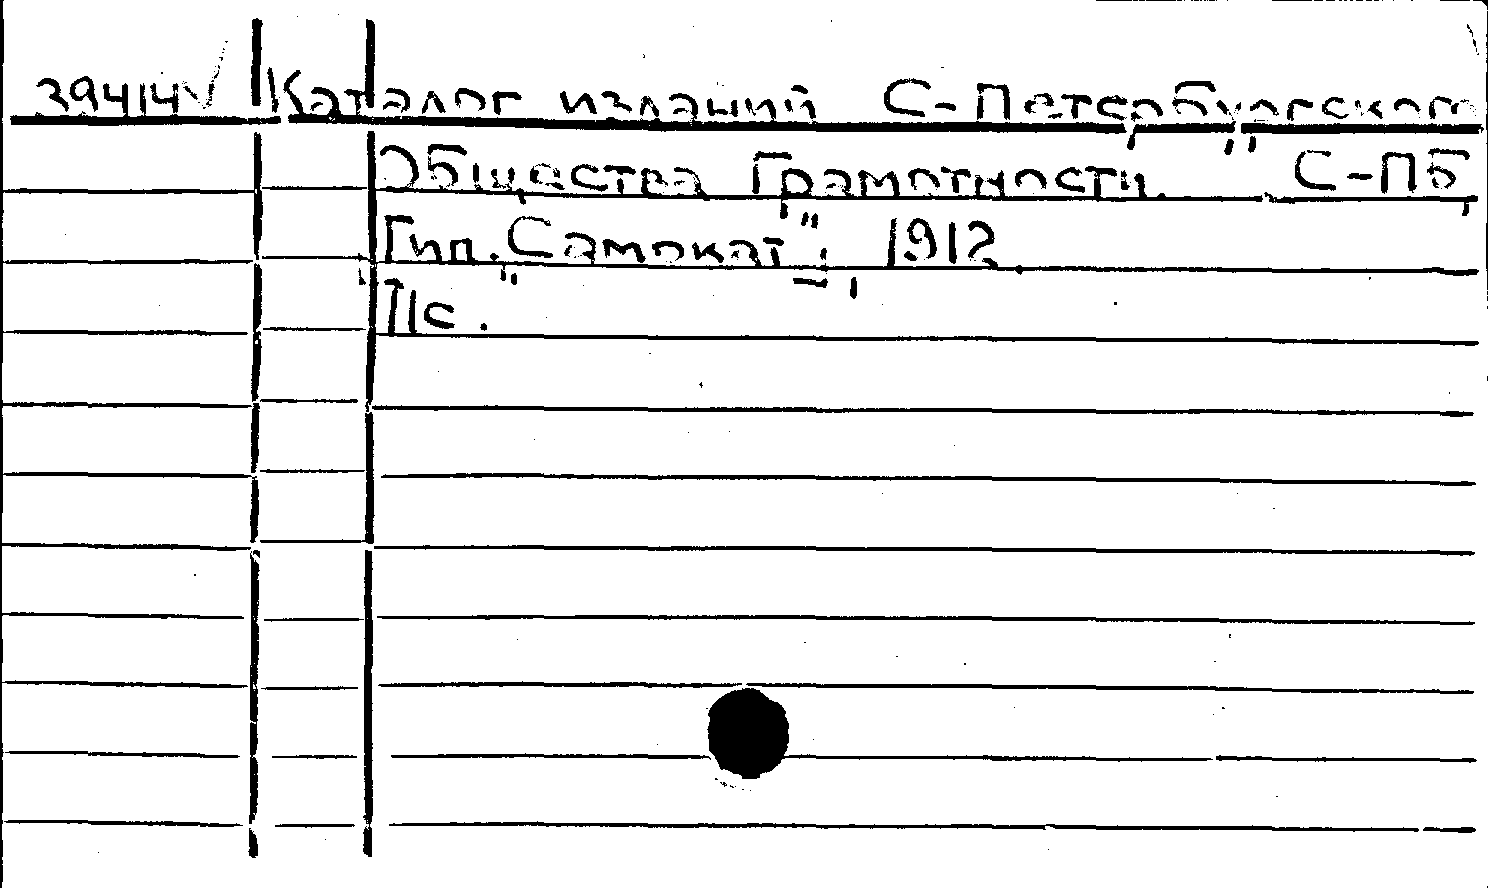 39414 Каталог изданий С-Петербургского
Общества Грамотности. С-ПБ,
Тип. „Самокат", 1912.
11с.